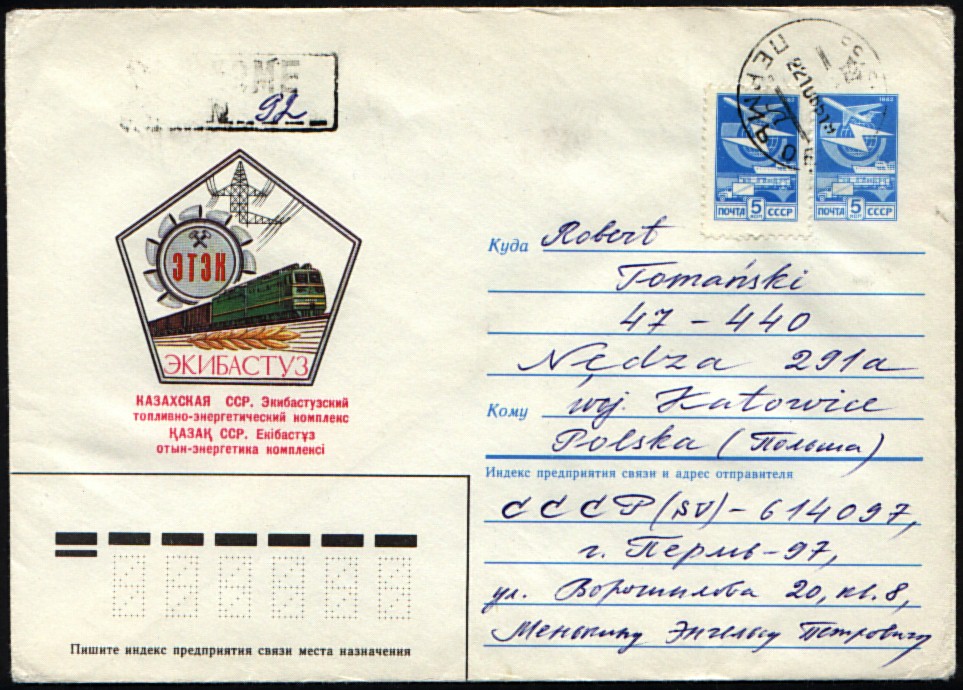 № 92
ПЕРМЬ
1982
1982
ПОЧТА 5 КОП СССР
ПОЧТА 5 КОП СССР
ЭТЭК
ЭКИБАСТУЗ
КАЗАХСКАЯ ССР. Экибастузский
топливно-энергетический комплекс
ҚАЗАҚ ССР. Екібастұз
отын-энергетика комплексі
Куда Robert
Tomański
47-440
Nędza 291a
Кому woj. Katowice
Polska (Польша)
Индекс предприятия связи и адрес отправителя
СССР (SU) - 614097,
г. Пермь-97,
ул. Ворошилова 20, кв. 8,
Менькину Энгельсу Петровичу
Пишите индекс предприятия связи места назначения